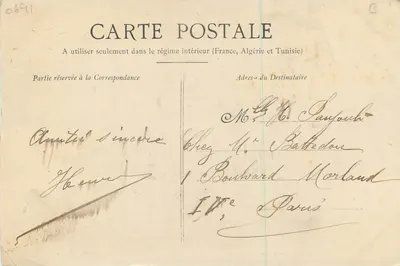 0691
B
CARTE POSTALE
A utiliser seulement dans le régime intérieur (France, Algérie et Tunisie)
Partie réservée à la Correspondance
Adresse du Destinataire
Mlle H.
Amitié sincère
Chez Mr
Henri
1 Boulevard Morland
IVe Paris